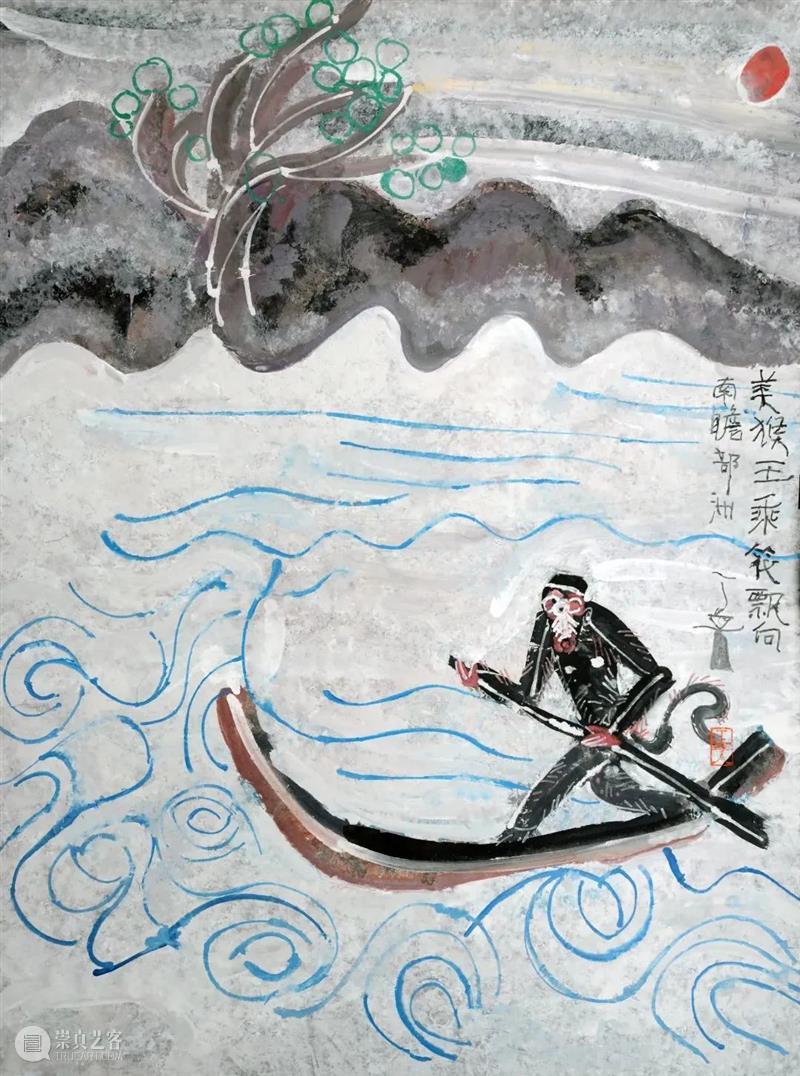 美猴王乘筏飘向
南瞻部洲
崇真艺客
TRUEART.COM